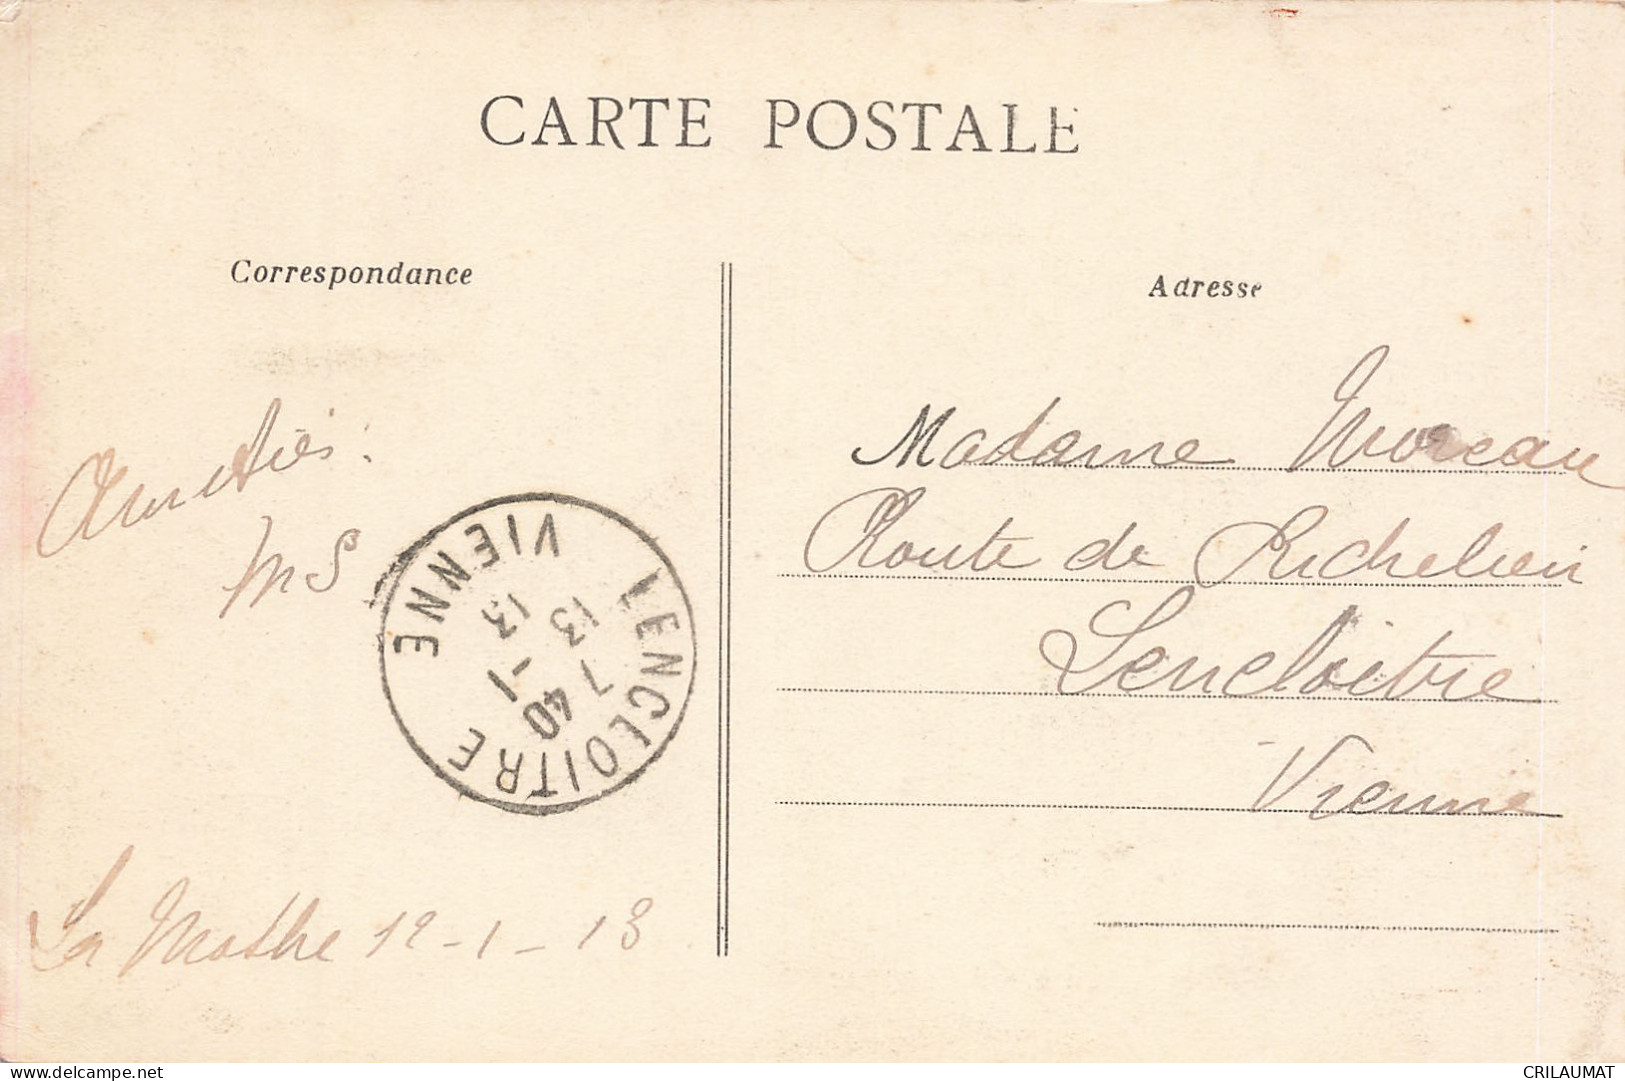 CARTE POSTALE
Correspondance
Adresse
Amitiés.
MS
Madame Moreau
Route de Richelieu
Lencloître
Vienne
LENCLOITRE
VIENNE
13 13
7 -1
40
La Mothe 12-1-13
delcampe.net
CRILAUMAT